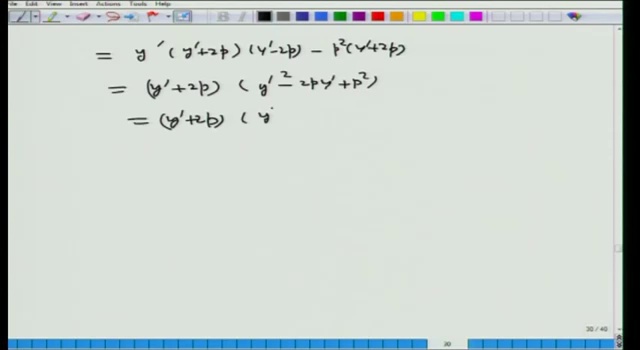 Edit View Insert Actions Tools Help
= y′(y′+2p)(y′-2p) - p²(y′+2p)
= (y′+2p) (y′² - 2py′ + p²)
= (y′+2p) (y′
30 / 40
30